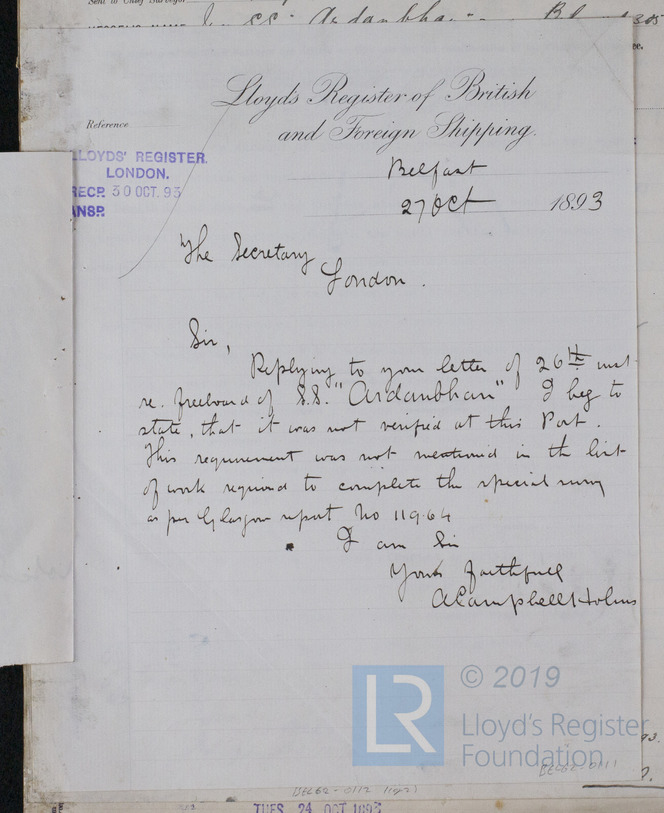 Sent to Chief Surveyor
Lloyds Register of British
and Foreign Shipping.
Reference
LLOYDS' REGISTER.
LONDON.
RECD. 30 OCT. 93
ANSD.
Belfast
27 Oct 1893
The Secretary
London.
Sir,
Replying to your letter of 26th inst
re. freeboard of S.S. "Ardanbhan" I beg to
state, that it was not verified at this Port.
This requirement was not mentioned in the list
of work required to complete the special survey
as per Glasgow report No 11964
I am Sir
Yours faithfully
A Campbell Holms
LR
© 2019
Lloyd's Register
Foundation
BEL62-0111
BEL62-0112
TUES. 24 OCT 1893